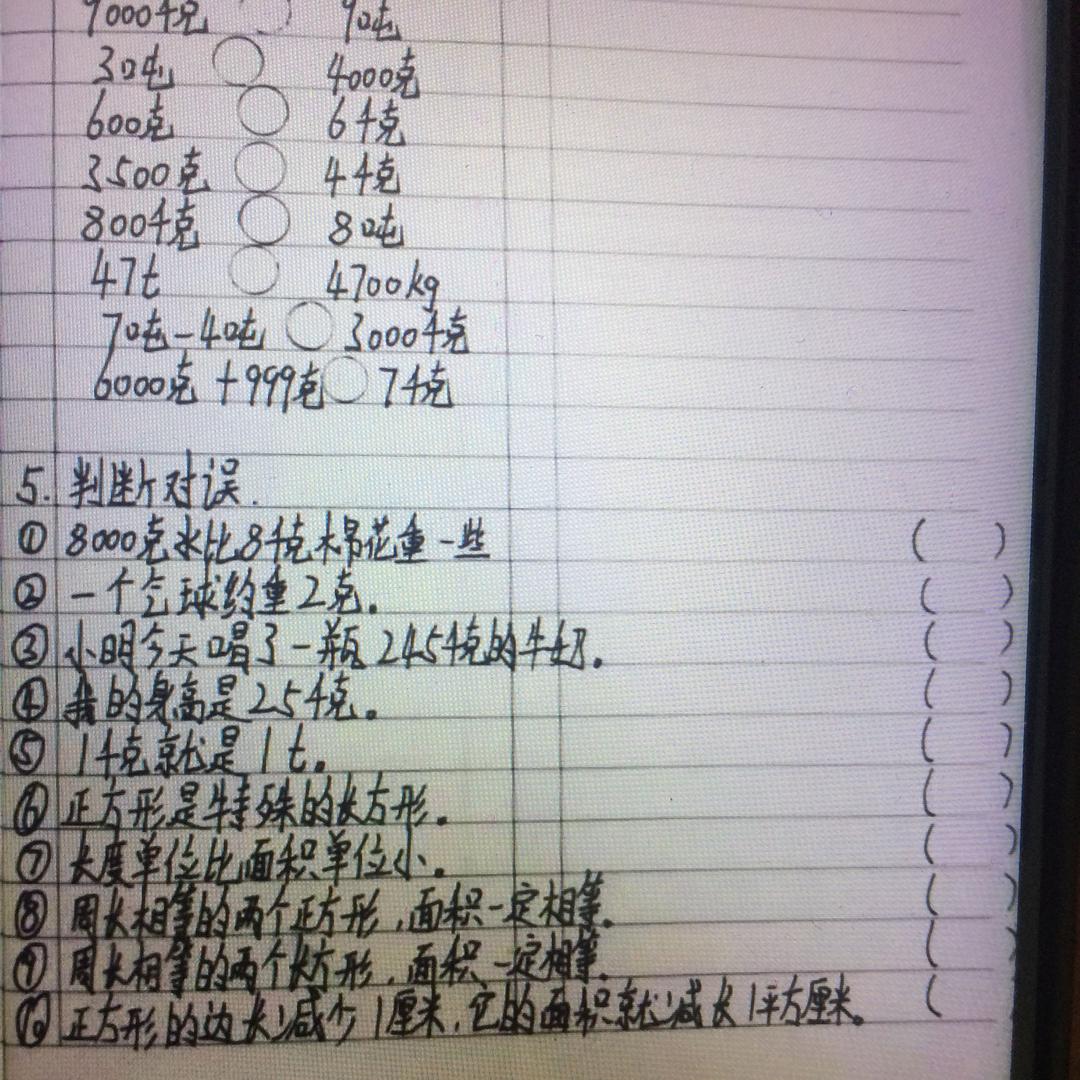 9000千克 ○ 90吨
30吨 ○ 4000克
600克 ○ 6千克
3500克 ○ 4千克
800千克 ○ 80吨
47t ○ 4700kg
70吨-40吨 ○ 3000千克
6000克+999克 ○ 7千克
5. 判断对误.
① 8000克水比8千克棉花重一些 ( )
② 一个气球约重2克. ( )
③ 小明今天喝了一瓶245千克的牛奶. ( )
④ 我的身高是25千克. ( )
⑤ 1千克就是1t. ( )
⑥ 正方形是特殊的长方形. ( )
⑦ 长度单位比面积单位小. ( )
⑧ 周长相等的两个正方形,面积一定相等. ( )
⑨ 周长相等的两个长方形,面积一定相等. ( )
⑩ 正方形的边长减少1厘米,它的面积就减长1平方厘米. (